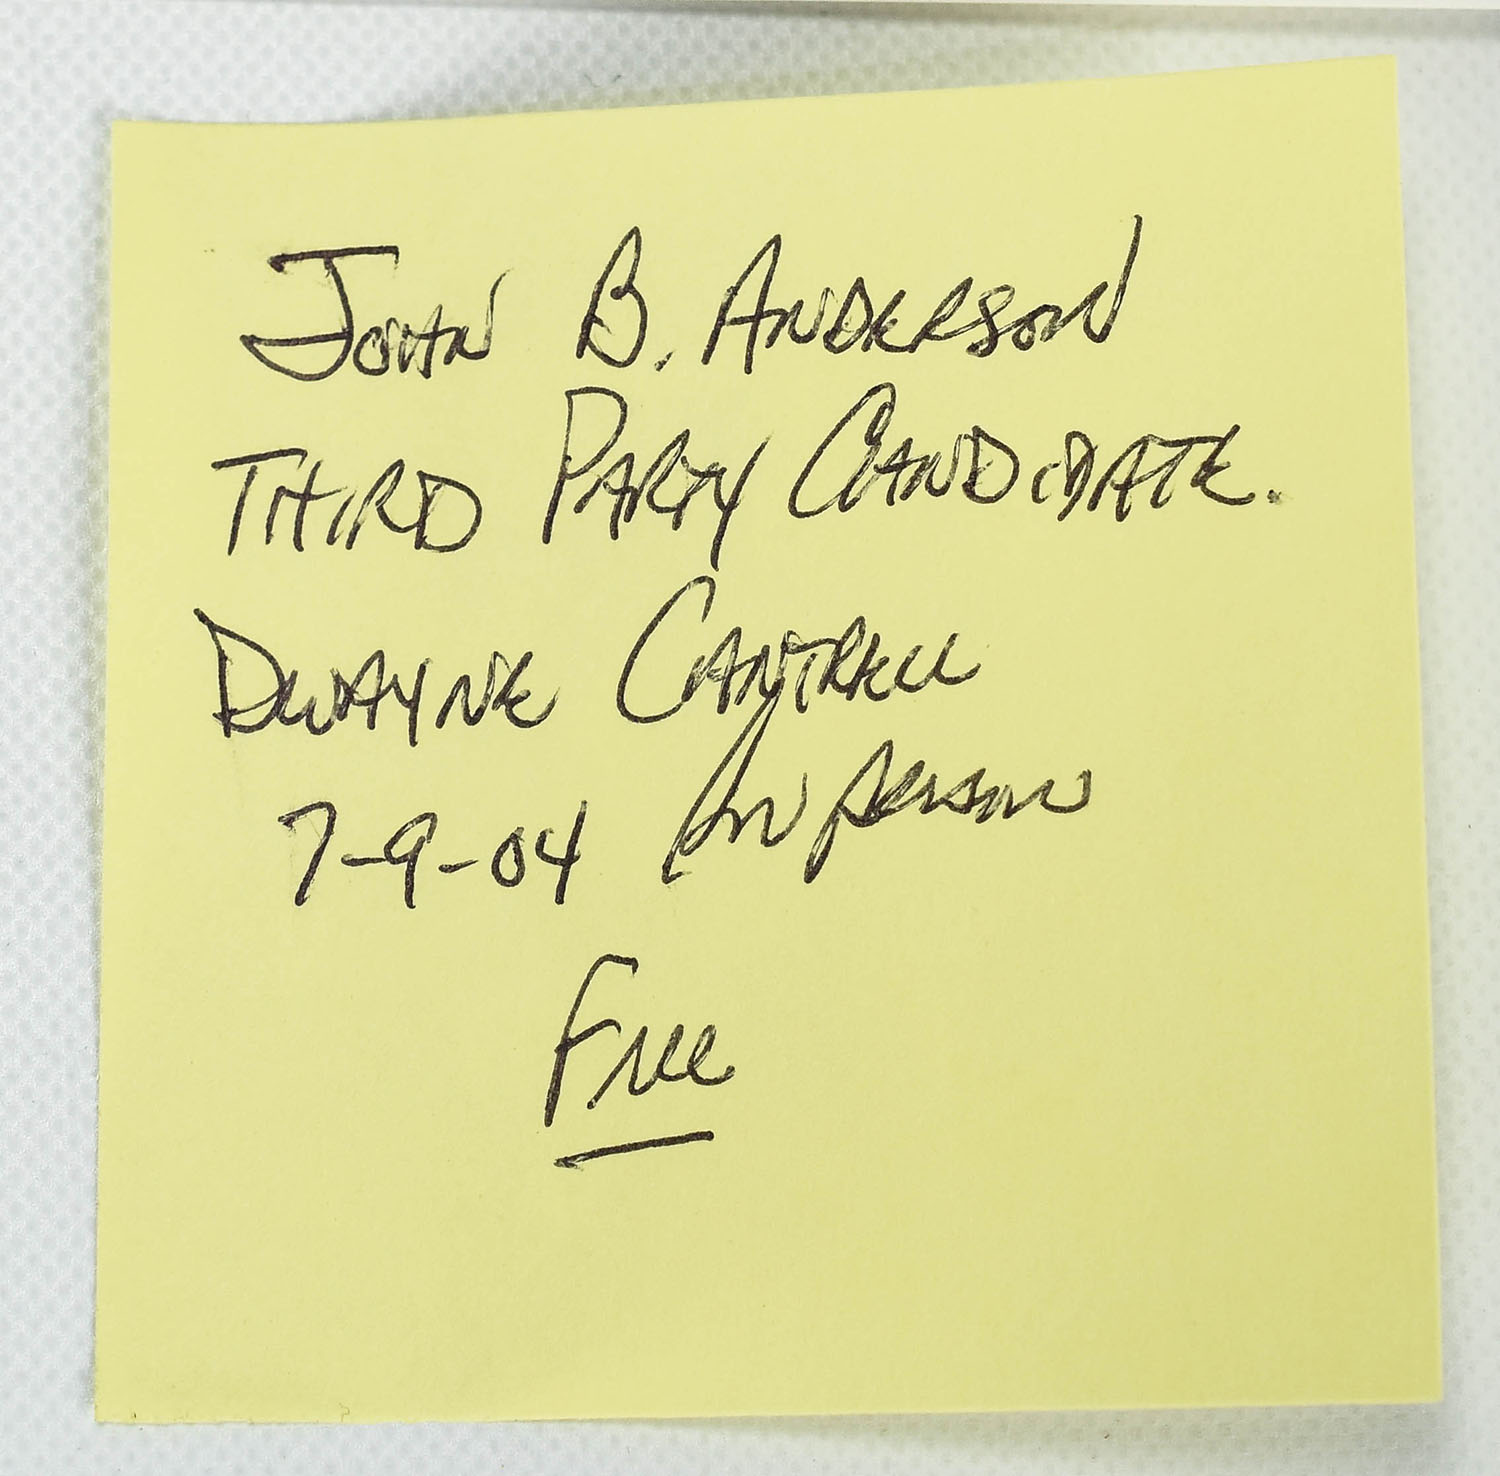 JOHN B. ANDERSON
THIRD PARTY CANDIDATE.
DWAYNE CANTRELL
7-9-04 In person
Free